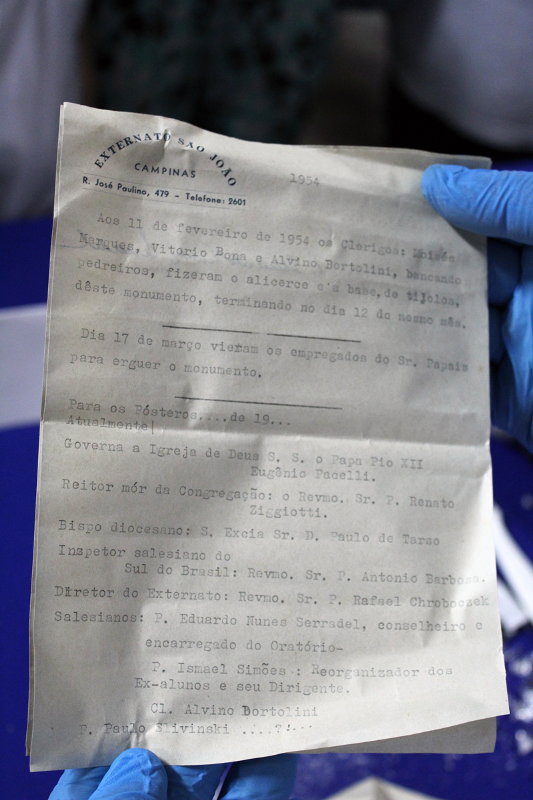 EXTERNATO SÃO JOÃO
CAMPINAS
R. José Paulino, 479 - Telefone: 2601
1954
Aos 11 de fevereiro de 1954 os Clerigos: Moisés
Marques, Vitorio Bona e Alvino Bortolini, bancando
pedreiros, fizeram o alicerce e a base, de tijolos,
dêste monumento, terminando no dia 12 do mesmo mês.
Dia 17 de março vieram os empregados do Sr. Papais
para erguer o monumento.
Para os Pósteros....de 19...
Atualmente|
Governa a Igreja de Deus S. S. o Papa Pio XII
Eugênio Pacelli.
Reitor mór da Congregação: o Revmo. Sr. P. Renato
Ziggiotti.
Bispo diocesano: S. Excia Sr. D. Paulo de Tarso
Inspetor salesiano do
Sul do Brasil: Revmo. Sr. P. Antonio Barbosa.
Diretor do Externato: Revmo. Sr. P. Rafael Chroboczek
Salesianos: P. Eduardo Nunes Serradel, conselheiro e
encarregado do Oratório-
P. Ismael Simões : Reorganizador dos
Ex-alunos e seu Dirigente.
Cl. Alvino Bortolini
P. Paulo Slivinski ....?!...